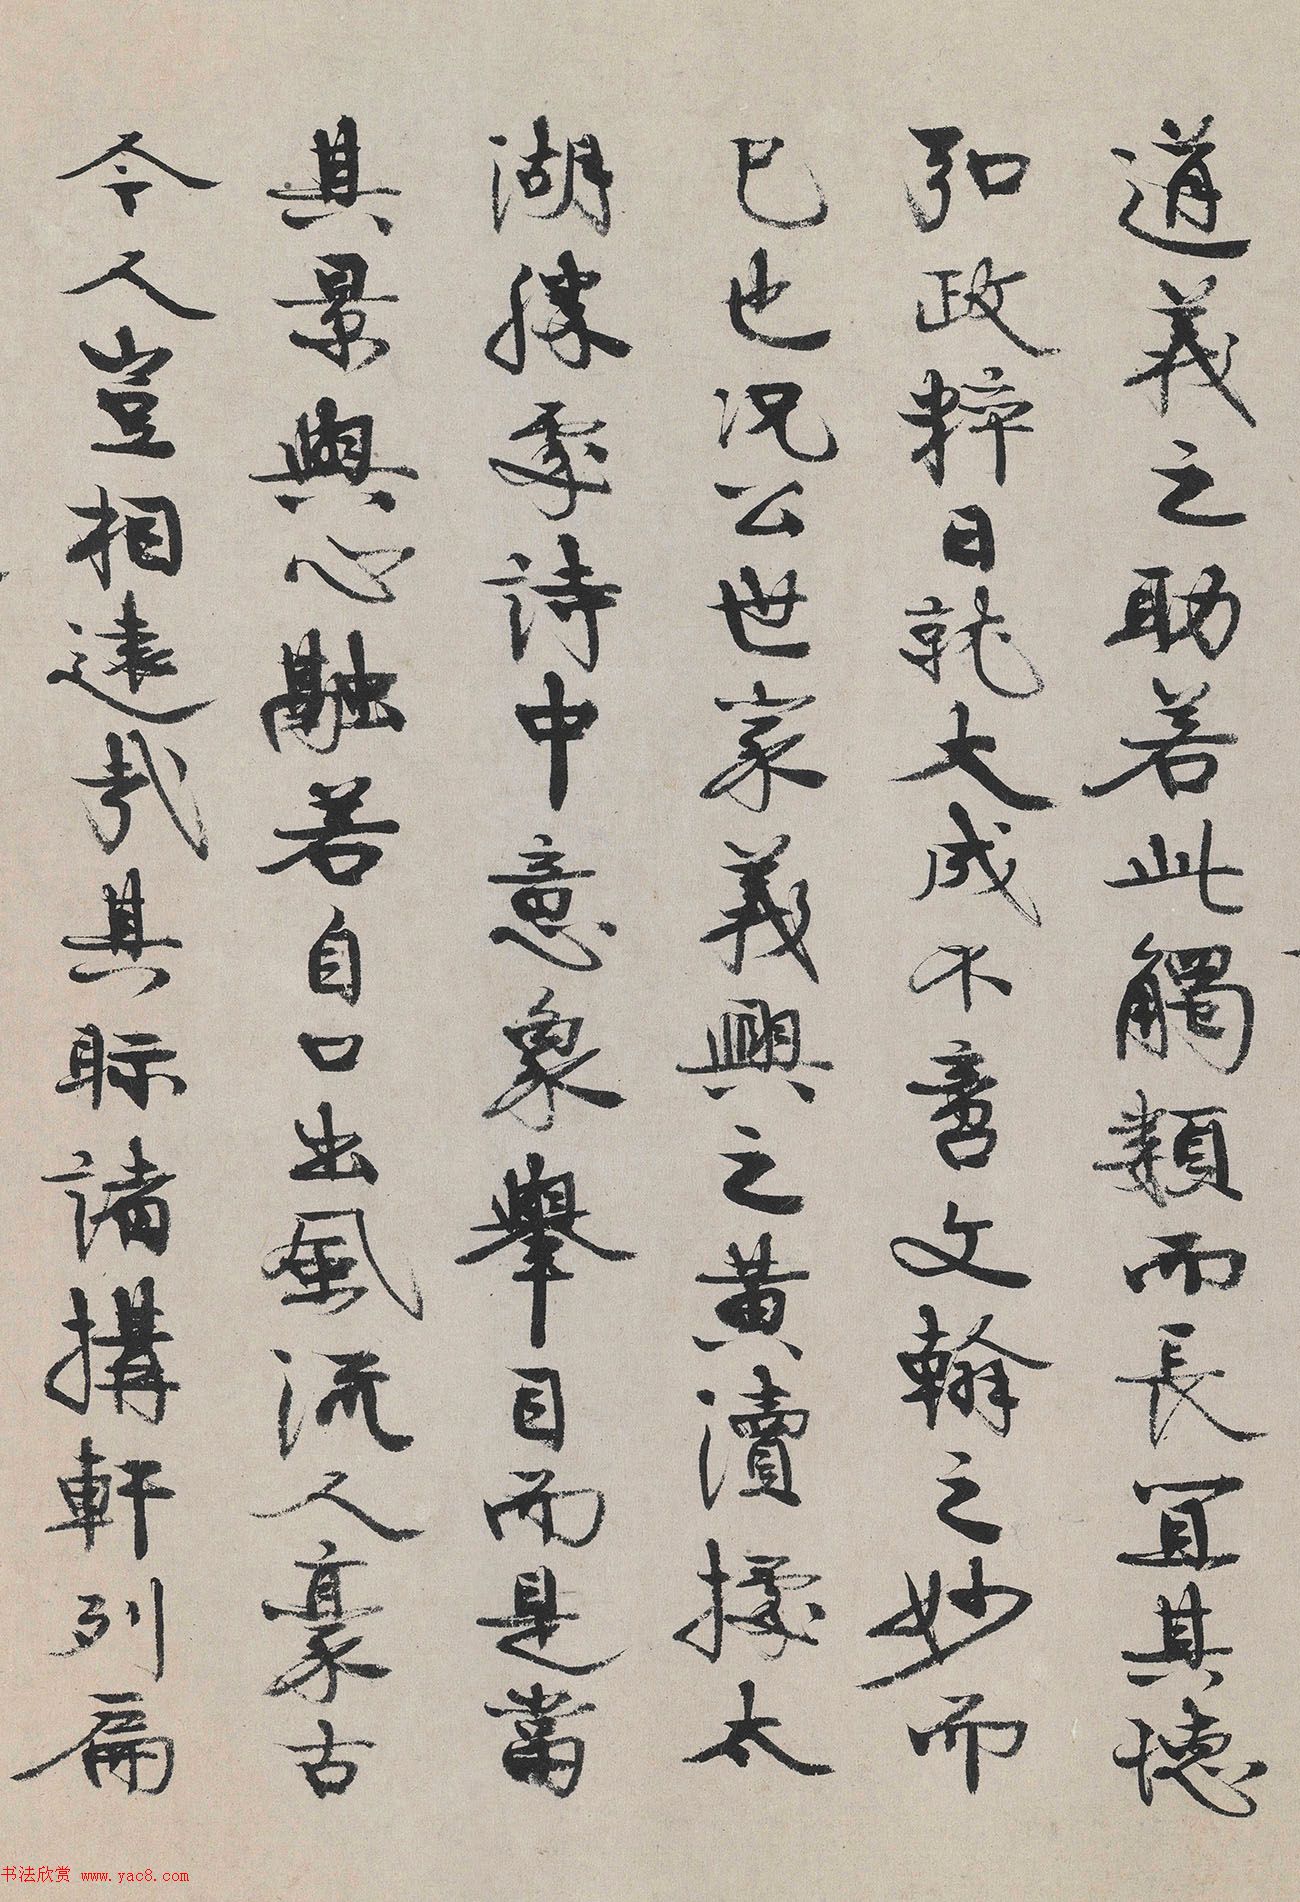 道義之助若此觸類而長宜其德
弘政粹日就大成不啻文翰之妙而
已也況公世家義興之黃瀆據太
湖勝處詩中意象舉目而是當
其景與心融若自口出風流人豪古
今人豈相遠哉其眎諸搆軒列扁
书法欣赏 www.yac8.com